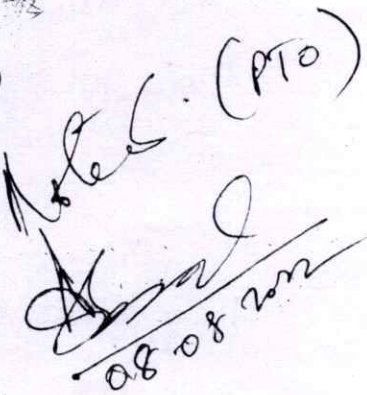 Noted. (PTO)
08.08.2022